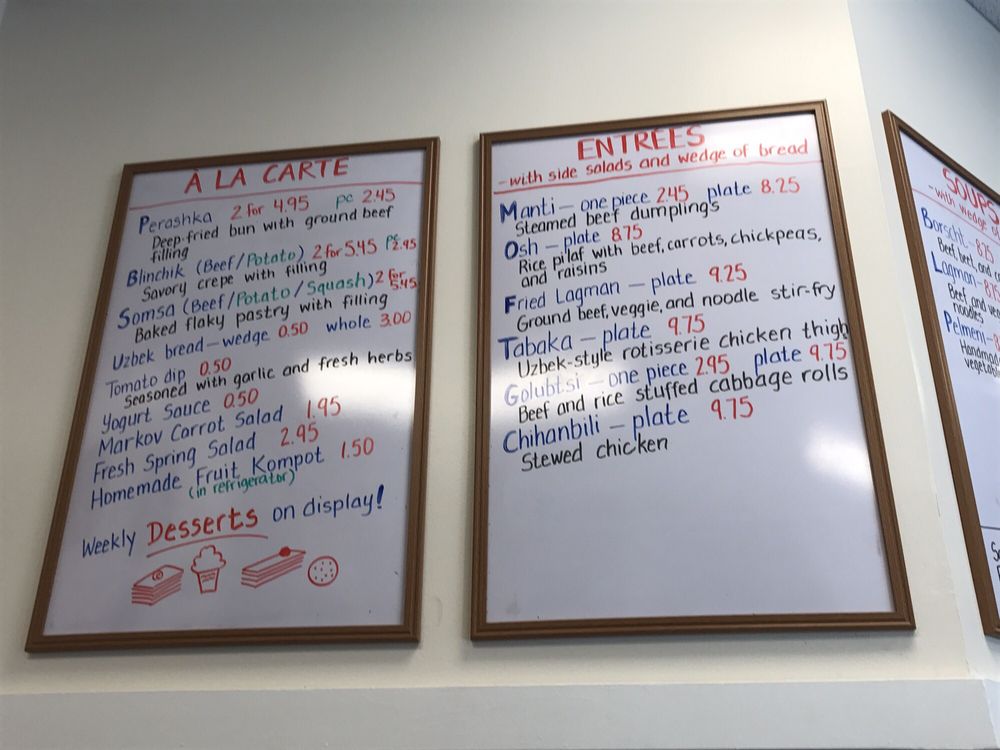 À LA CARTE
Perashka 2 for 4.95 pc 2.45
Deep-fried bun with ground beef
filling
Blinchik (Beef/Potato) 2 for 5.45 pc 2.95
Savory crepe with filling
Somsa (Beef/Potato/Squash) 2 for 5.45
Baked flaky pastry with filling
Uzbek bread—wedge 0.50 whole 3.00
Tomato dip 0.50
Seasoned with garlic and fresh herbs
Yogurt Sauce 0.50
Markov Carrot Salad 1.95
Fresh Spring Salad 2.95
Homemade Fruit Kompot 1.50
(in refrigerator)
Weekly Desserts on display!
ENTREES
-with side salads and wedge of bread
Manti—one piece 2.45 plate 8.25
Steamed beef dumplings
Osh—plate 8.75
Rice pilaf with beef, carrots, chickpeas,
and raisins
Fried Lagman—plate 9.25
Ground beef, veggie, and noodle stir-fry
Tabaka—plate 9.75
Uzbek-style rotisserie chicken thigh
Golubtsi—one piece 2.95 plate 9.75
Beef and rice stuffed cabbage rolls
Chihanbili—plate 9.75
Stewed chicken
SOUPS
-with wedge
Borscht-8.75
Beef, beet, and
Lagman-8.75
Beef, and
noodles
Pelmeni-
Handmad
vegetab